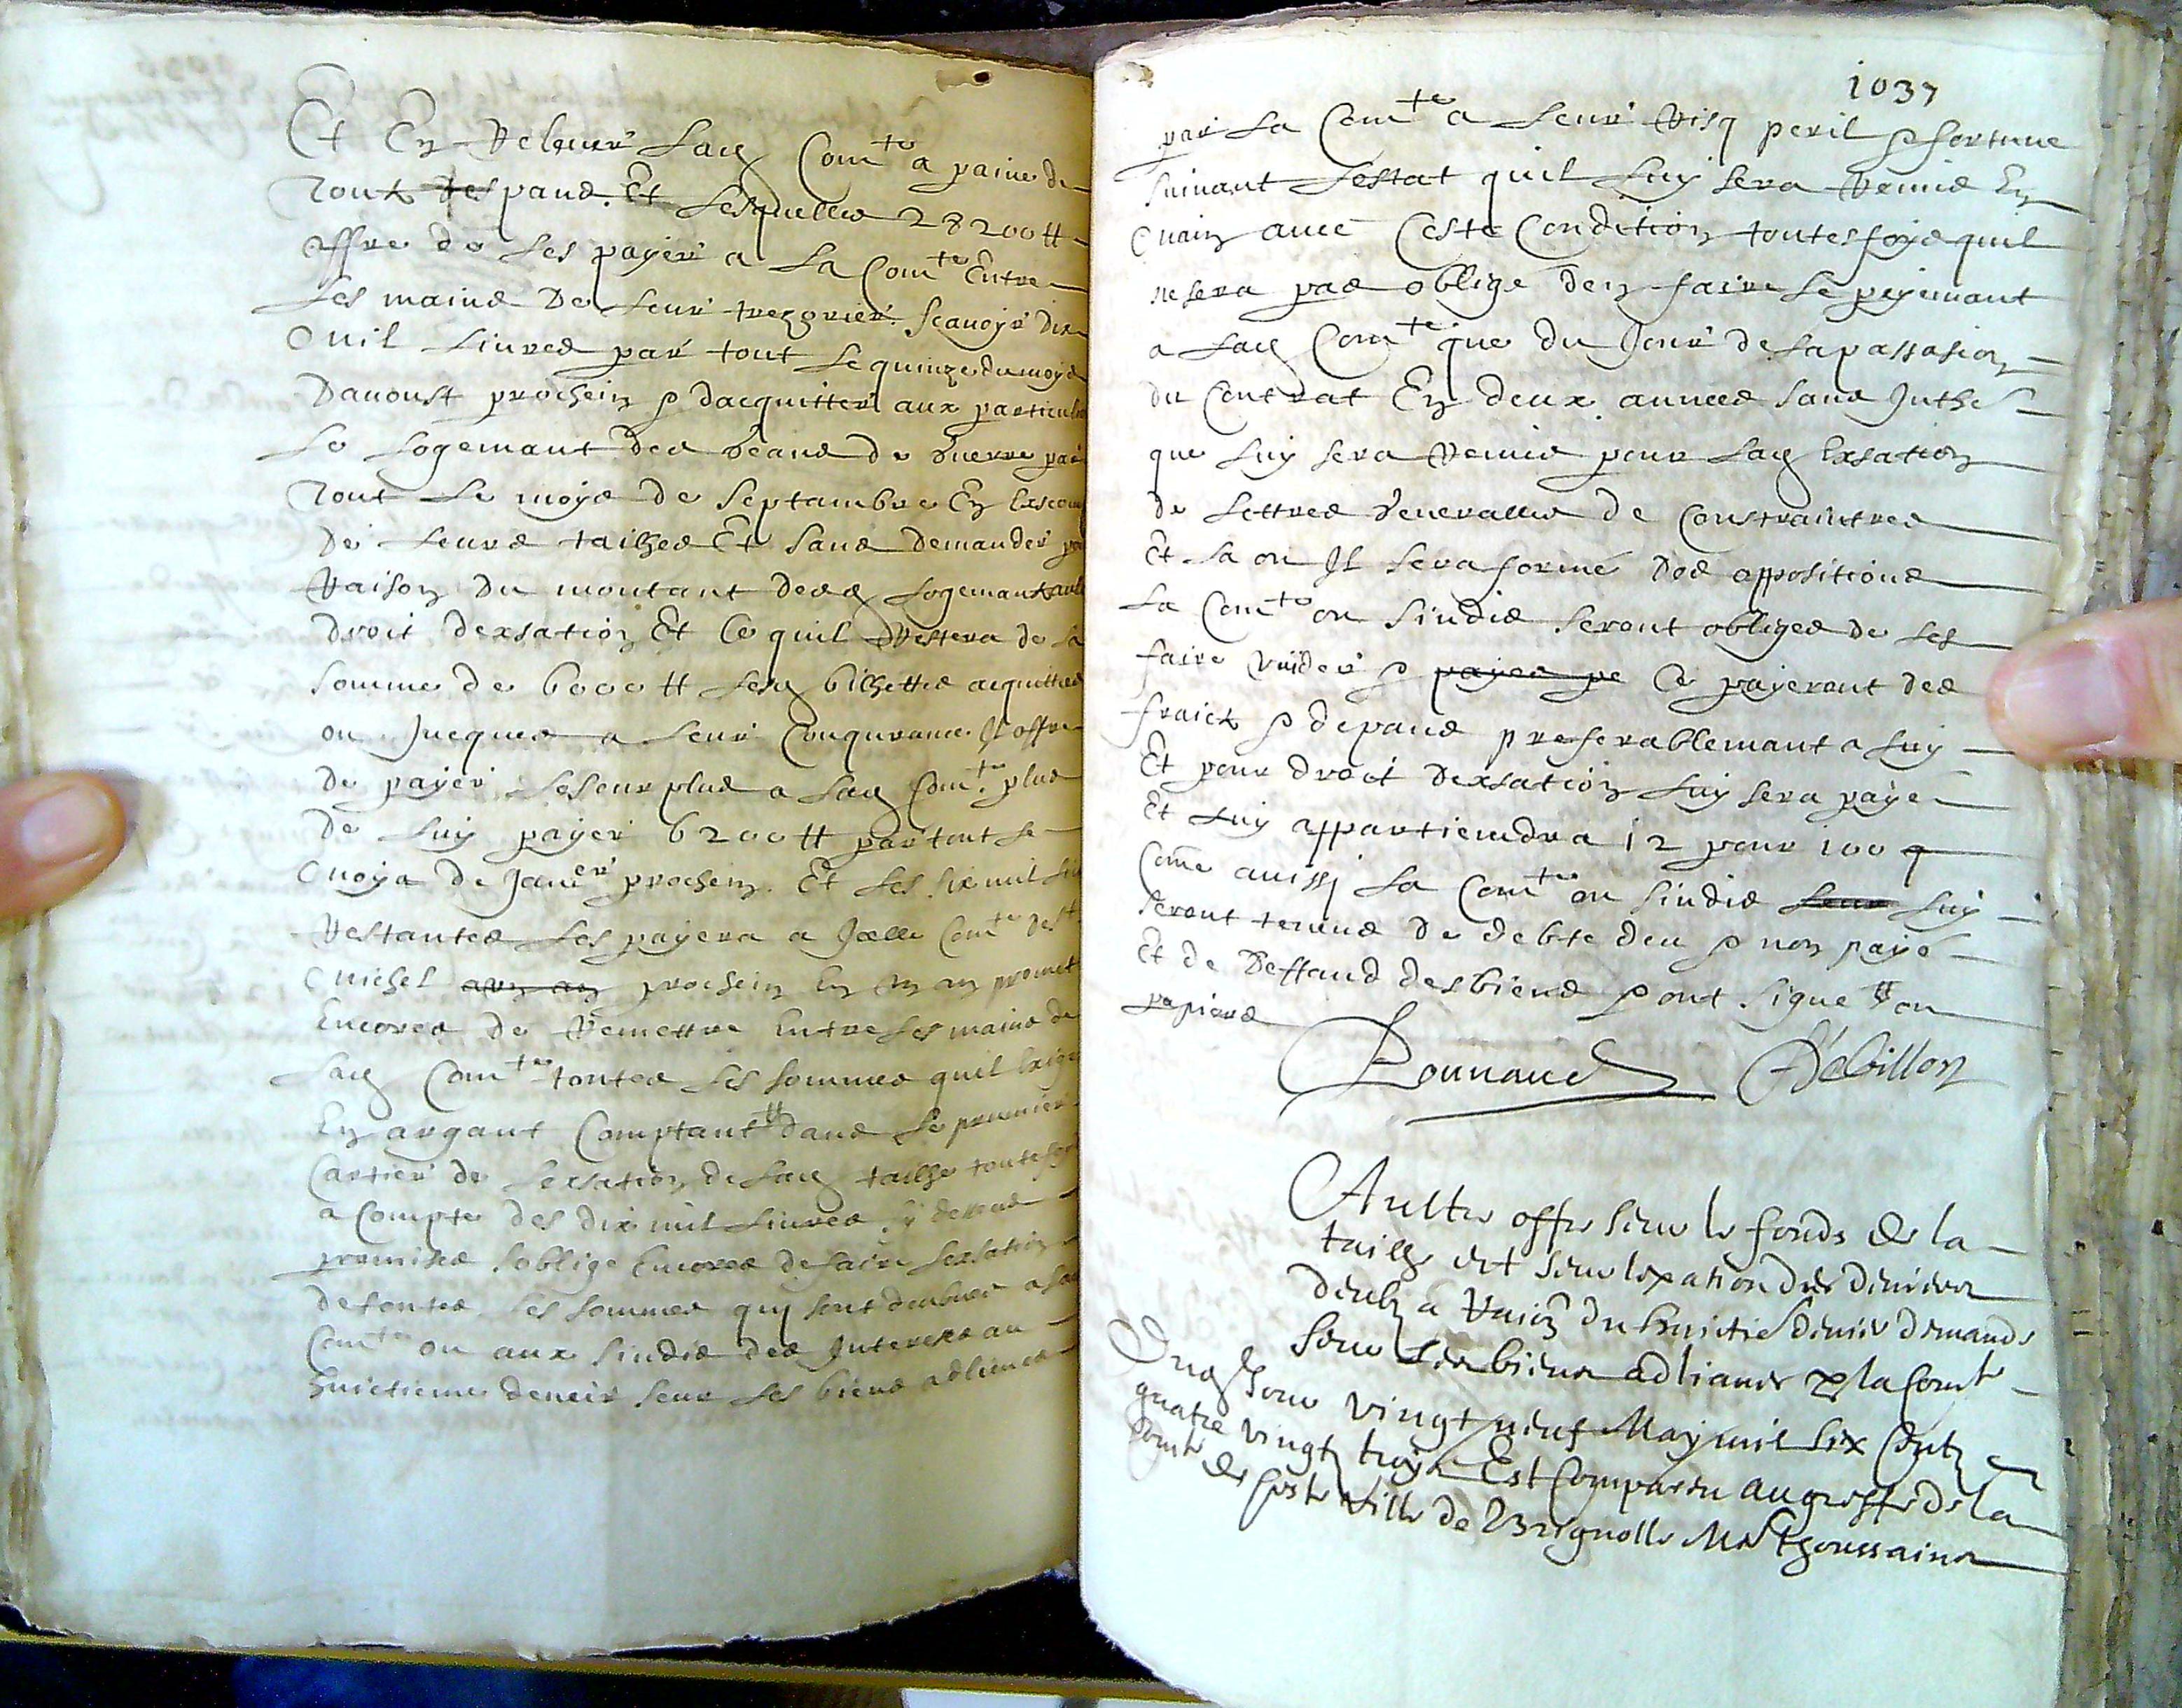 Et En Reloeur lad Com^te a paine de
Tout despans. Et lesquelles 28200 ll
offre de les payer a la Com^te Entre
les mains de leur trezorier. Scauoyr dix
mil liures par tout le quinze du moys
Daoust prochein & dacquitter aux particuli
le logemant des geans de guerre par
Tout le moys de Septambre En
de leurs tailhes Et sans demander
Raison du montant desd logemant aulc
droit dexsation Et Ce quil Restera de la
somme de 6000 ll lesd bilhettes acquittes
ou Jucques a leur Conqurance Il offre
de payer leseurplus a lad Com^te. plus
de luy payer 6200 ll par tout le
moys de Jan^er prochein. Et les six mil
Restantes les payera a Jcelle Com^te de S^t
michel prochein En promet
Encores de Remettre Entre les mains de
lad Com^te toutes les sommes quil
En argant Comptant dans le premier
Cartier de lexsation de lad tailhe
a Compte des dix mil liures
promises soblige Encores de faire lexsation
de toutes les sommes quy sont deubues a lad
Com^te ou aux Sindis des Interests au
huictieme denier seur les biens adliénés
1037
par la Com^te a leur Risq peril & fortune
suiuant lestat quil luy sera Remis En
main auec Ceste Condition toutesfoys quil
ne sera pas oblige den faire le peyemant
a lad Com^te que du Jour de la passasion
du Contrat En deux annees sans Inthe
que luy sera Remis pour lad Exsation
de lettres generalles de Constraintres
Et la ou Il sera formé des oppositions
la Com^te ou Sindis seront obliges de les
faire vuider & payer Ce payeront des
fraicts & depans preferablemant a luy
Et pour droit dexsation luy sera paye
Et luy appartiendra 12 pour 100
Come aussj la Com^te ou sindis leur luy
seront tenus de debte deu & non payé
Et de deffaud des biens & ont signe
papiers
Debillon
Aultre offre seur le fonds de la
tailhe et seur lexation des deniers
deubz a Raison du huictie denier demande
seur les biens adlianes p la Com^te
Dud Jour vingt neuf May mil six Centz
quatre vingtz troys Est Comparu au greffe de la
Com^te de ceste ville de Brignolle M^e Thoussains